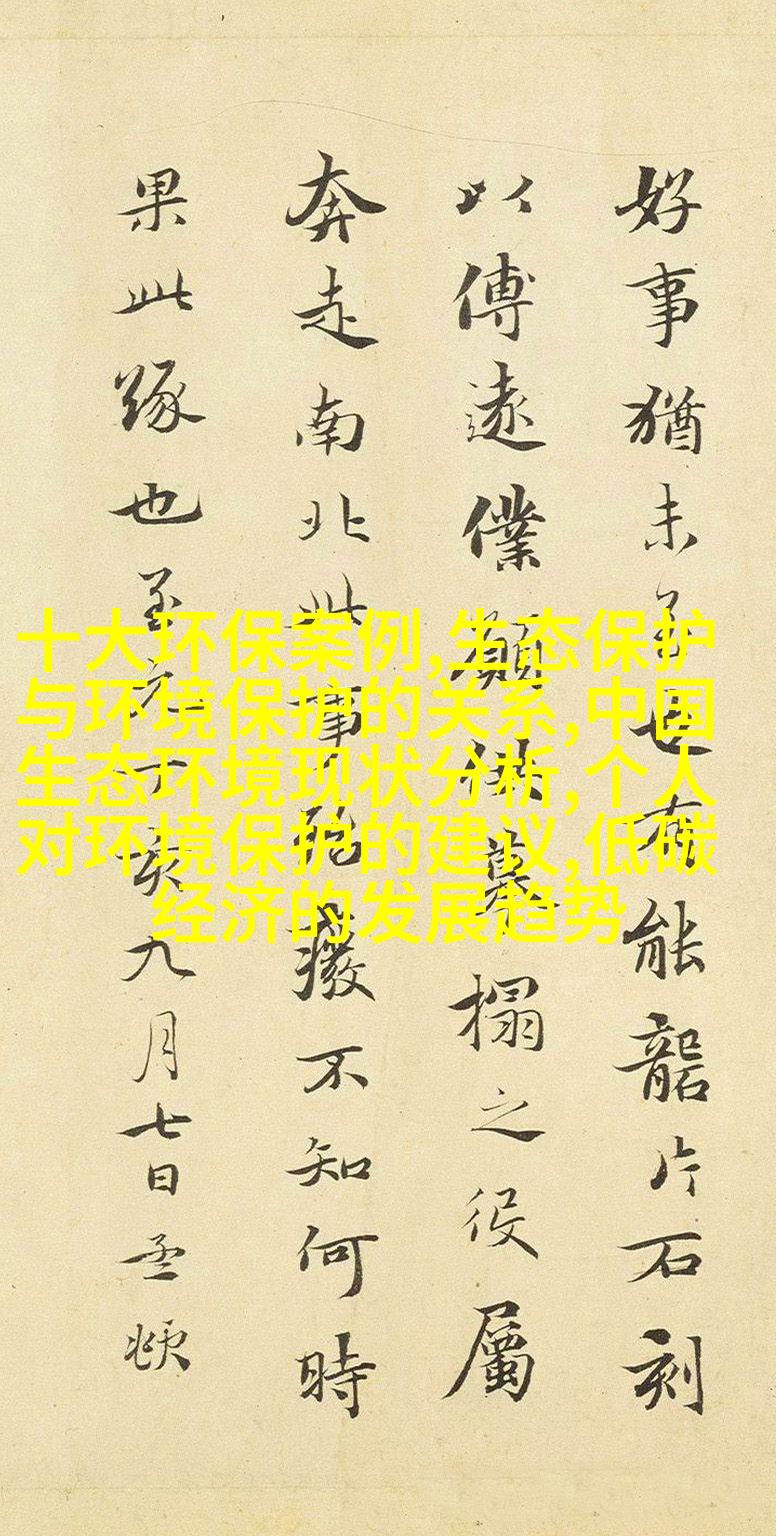 好事猶未世有能礱片石刻
以傳遠僕願供摹搨之役屬
奔走南北此事殆癈不知何時
果此緣也至元丁亥九月七日孟頫
十大环保案例,生态保护
与环境保护的关系,中国
生态环境现状分析,个人
对环境保护的建议,低碳
经济的发展趋势